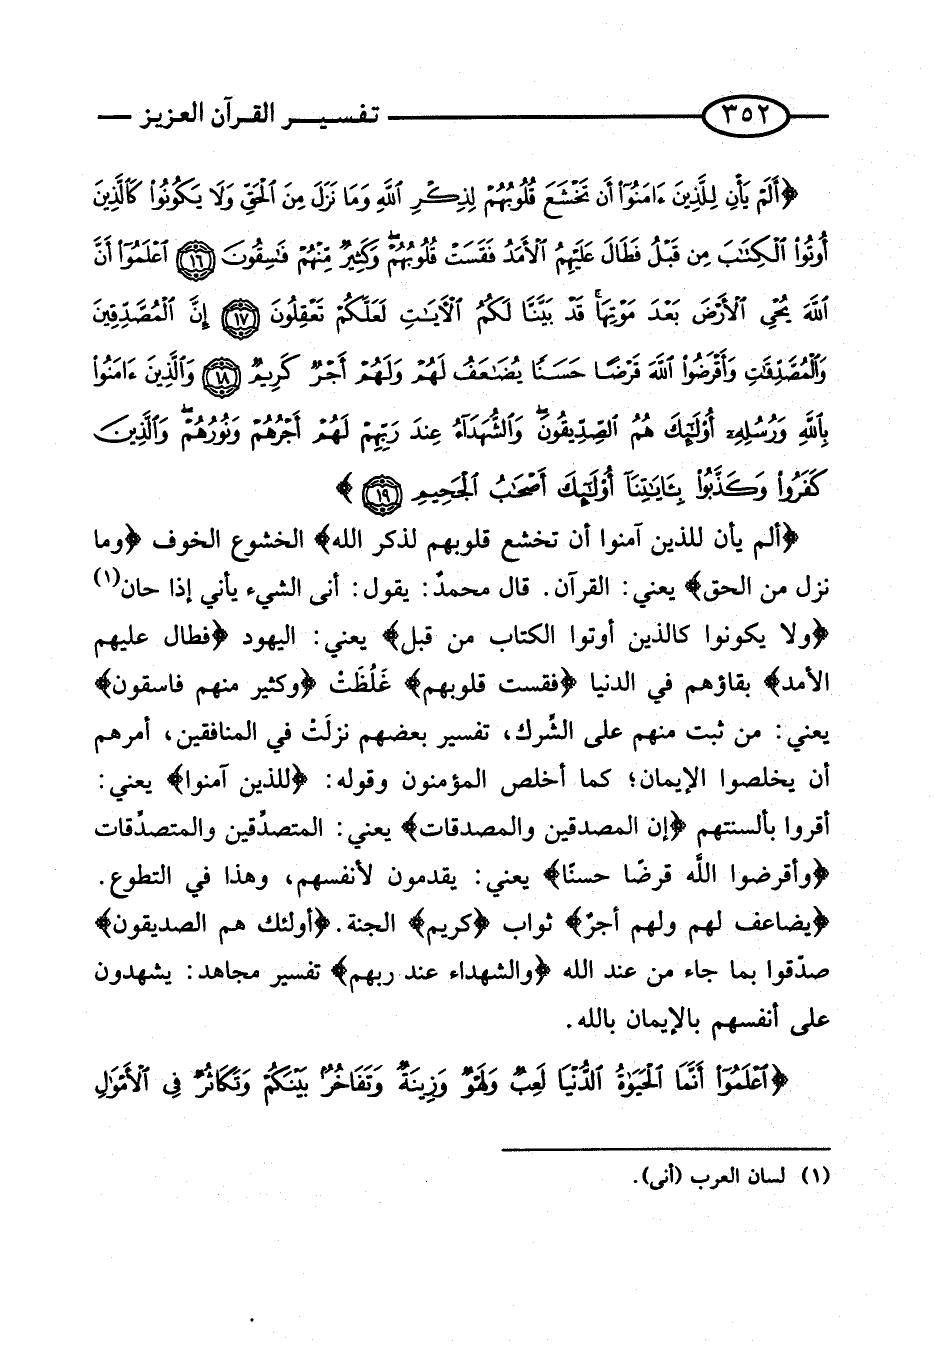 ٣٥٢ تفسير القرآن العزيز
﴿أَلَمْ يَأْنِ لِلَّذِينَ ءَامَنُوٓا۟ أَن تَخْشَعَ قُلُوبُهُمْ لِذِكْرِ ٱللَّهِ وَمَا نَزَلَ مِنَ ٱلْحَقِّ وَلَا يَكُونُوا۟ كَٱلَّذِينَ
أُوتُوا۟ ٱلْكِتَٰبَ مِن قَبْلُ فَطَالَ عَلَيْهِمُ ٱلْأَمَدُ فَقَسَتْ قُلُوبُهُمْ ۖ وَكَثِيرٌ مِّنْهُمْ فَٰسِقُونَ ١٦ ٱعْلَمُوٓا۟ أَنَّ
ٱللَّهَ يُحْىِ ٱلْأَرْضَ بَعْدَ مَوْتِهَا ۚ قَدْ بَيَّنَّا لَكُمُ ٱلْءَايَٰتِ لَعَلَّكُمْ تَعْقِلُونَ ١٧ إِنَّ ٱلْمُصَّدِّقِينَ
وَٱلْمُصَّدِّقَٰتِ وَأَقْرَضُوا۟ ٱللَّهَ قَرْضًا حَسَنًا يُضَٰعَفُ لَهُمْ وَلَهُمْ أَجْرٌ كَرِيمٌ ١٨ وَٱلَّذِينَ ءَامَنُوا۟
بِٱللَّهِ وَرُسُلِهِۦٓ أُو۟لَٰٓئِكَ هُمُ ٱلصِّدِّيقُونَ ۖ وَٱلشُّهَدَآءُ عِندَ رَبِّهِمْ لَهُمْ أَجْرُهُمْ وَنُورُهُمْ ۖ وَٱلَّذِينَ
كَفَرُوا۟ وَكَذَّبُوا۟ بِـَٔايَٰتِنَآ أُو۟لَٰٓئِكَ أَصْحَٰبُ ٱلْجَحِيمِ ١٩﴾
﴿ألم يأن للذين آمنوا أن تخشع قلوبهم لذكر الله﴾ الخشوع الخوف ﴿وما
نزل من الحق﴾ يعني: القرآن. قال محمدٌ: يقول: أنى الشيء يأني إذا حان(١)
﴿ولا يكونوا كالذين أوتوا الكتاب من قبل﴾ يعني: اليهود ﴿فطال عليهم
الأمد﴾ بقاؤهم في الدنيا ﴿فقست قلوبهم﴾ غَلُظَتْ ﴿وكثير منهم فاسقون﴾
يعني: من ثبت منهم على الشِّرك، تفسير بعضهم نزلَتْ في المنافقين، أمرهم
أن يخلصوا الإيمان؛ كما أخلص المؤمنون وقوله: ﴿للذين آمنوا﴾ يعني:
أقروا بألسنتهم ﴿إن المصدقين والمصدقات﴾ يعني: المتصدِّقين والمتصدِّقات
﴿وأقرضوا اللَّه قرضًا حسنًا﴾ يعني: يقدمون لأنفسهم، وهذا في التطوع.
﴿يضاعف لهم ولهم أجرٌ﴾ ثواب ﴿كريم﴾ الجنة. ﴿أولئك هم الصديقون﴾
صدّقوا بما جاء من عند الله ﴿والشهداء عند ربهم﴾ تفسير مجاهد: يشهدون
على أنفسهم بالإيمان بالله.
﴿ٱعْلَمُوٓا۟ أَنَّمَا ٱلْحَيَوٰةُ ٱلدُّنْيَا لَعِبٌ وَلَهْوٌ وَزِينَةٌ وَتَفَاخُرٌۢ بَيْنَكُمْ وَتَكَاثُرٌ فِى ٱلْأَمْوَٰلِ
(١) لسان العرب (أنى).